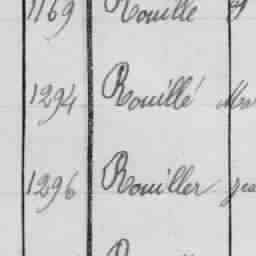 1169 Rouillé
1294 Rouillé
1296 Rouiller